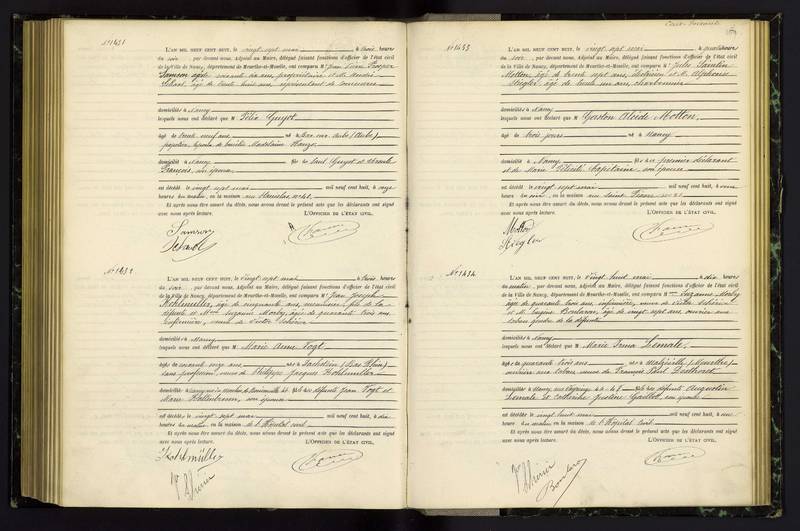 N° 1431
L'AN MIL NEUF CENT HUIT, le vingt sept mai à trois heures
du soir, par devant nous, Adjoint au Maire, délégué faisant fonctions d'officier de l'état civil
de la Ville de Nancy, département de Meurthe-et-Moselle, ont comparu M. Jean
Samson âgé de soixante ans, propriétaire et M. André
domiciliés à Nancy
lesquels nous ont déclaré que M Félix Guyot
âgé de trente neuf ans né à Bar-sur-Aube (Aube)
papetier, époux de Madeleine
domicilié à Nancy fils de Paul Guyot et
François, son épouse
est décédé le vingt sept mai mil neuf cent huit, à onze
heures du matin, en la maison rue Stanislas n° 41.
Et après nous être assuré du décès, nous avons dressé le présent acte que les déclarants ont signé
avec nous après lecture. L'OFFICIER DE L'ÉTAT CIVIL,
Samson
N° 1432
L'AN MIL NEUF CENT HUIT, le vingt sept mai à trois heures
du soir, par devant nous, Adjoint au Maire, délégué faisant fonctions d'officier de l'état civil
de la Ville de Nancy, département de Meurthe-et-Moselle, ont comparu M. Jean Joseph
Kohlmuller, âgé de cinquante ans, fils de la
défunte et Mme Suzanne Morby, âgée de quarante trois ans
infirmière, veuve de Victor
domiciliés à Nancy
lesquels nous ont déclaré que M Marie Anne Vogt
âgée de ans née à (Bas Rhin)
sans profession, veuve de Philippe Jacques Kohlmuller
domiciliée à fille des défunts Jean Vogt et
Marie son épouse
est décédée le vingt sept mai mil neuf cent huit, à dix
heures du matin, en la maison de l'Hôpital civil
Et après nous être assuré du décès, nous avons dressé le présent acte que les déclarants ont signé
avec nous après lecture. L'OFFICIER DE L'ÉTAT CIVIL,
Kohlmüller
N° 1433
L'AN MIL NEUF CENT HUIT, le vingt sept mai à quatre heures
du soir, par devant nous, Adjoint au Maire, délégué faisant fonctions d'officier de l'état civil
de la Ville de Nancy, département de Meurthe-et-Moselle, ont comparu M. Jules
Motton, âgé de trente sept ans, et M. Alphonse
Riegler, âgé de trente un ans, charbonnier
domiciliés à Nancy
lesquels nous ont déclaré que M Gaston Alcide Motton,
âgé de trois jours né à Nancy
domicilié à Nancy fils du premier déclarant
et de Marie Félicité Capitaine, son épouse
est décédé le vingt sept mai mil neuf cent huit, à une
heure du soir, en la maison rue Saint
Et après nous être assuré du décès, nous avons dressé le présent acte que les déclarants ont signé
avec nous après lecture. L'OFFICIER DE L'ÉTAT CIVIL,
Motton
Riegler
N° 1434
L'AN MIL NEUF CENT HUIT, le vingt huit mai à dix heures
du matin, par devant nous, Adjoint au Maire, délégué faisant fonctions d'officier de l'état civil
de la Ville de Nancy, département de Meurthe-et-Moselle, ont comparu Mme Suzanne Morby
âgée de quarante trois ans, infirmière, veuve de Victor
et M. Eugène âgé de vingt sept ans, ouvrier aux
tabacs, gendre de la défunte
domiciliés à Nancy
lesquels nous ont déclaré que M Marie Irma Lemale,
âgée de quarante trois ans née à (Moselle)
ouvrière aux tabacs, veuve de François
domiciliée à Nancy fille des défunts Augustin
Lemale et Catherine Justine son épouse
est décédée le vingt huit mai mil neuf cent huit, à une
heure du matin, en la maison de l'Hôpital civil
Et après nous être assuré du décès, nous avons dressé le présent acte que les déclarants ont signé
avec nous après lecture. L'OFFICIER DE L'ÉTAT CIVIL,